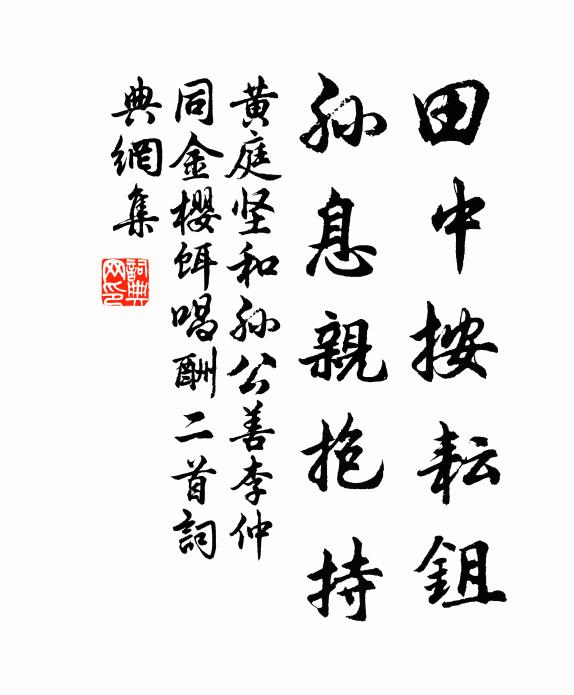 田中按耘鉏
孙息親抱持
黄庭坚和孙公善李仲
同金櫻餌唱酬二首詞
典網集
詞典網印